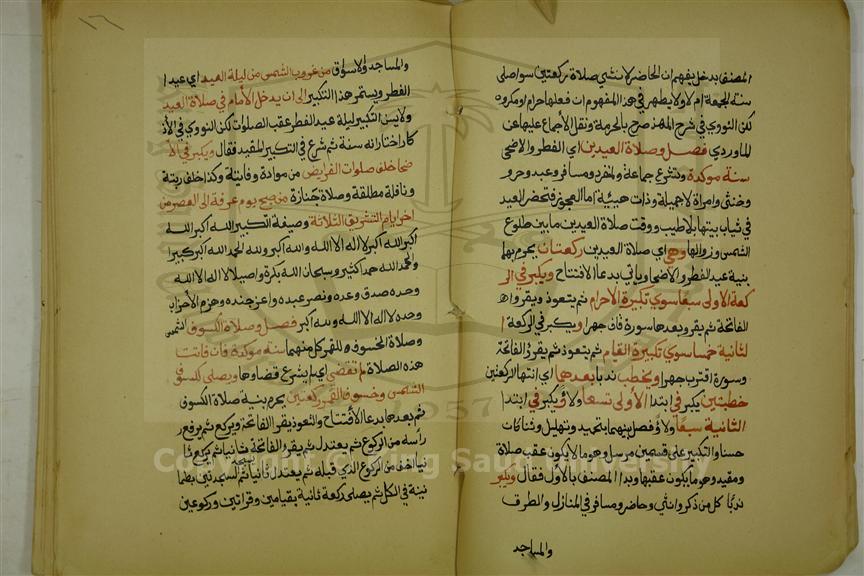 المصنف بدخل يفهم ان الحاضر لا ننشي صلاة ركعتين سوا صلى
سنة الجمعة ام لا ولا يظهر في هذا المفهوم ان فعلها حرام او مكروه
لكن النووي في شرح المهذب صرح بالحرمة ونقل الاجماع عليها عن
الماوردي فصل وصلاة العيدين اي الفطر والاضحى
سنة موكدة وتشرع جماعة ولمنفرد ومسافر وعبد وحر و
وخنثى وامراة لا جميلة وذات هيئة اما العجوز فتحضر العيد
في ثياب بيتها بلا طيب ووقت صلاة العيدين ما بين طلوع
الشمس وزوالها وهي اي صلاة العيدين ركعتان يحرم بهما
بنية عيد الفطر او الاضحى وياتي بدعا الافتتاح ويكبر في الر
كعة الاولى سبعا سوى تكبيرة الاحرام ثم يتعوذ ويقروا ه
الفاتحة ثم يقرو بعدها سورة ق جهرا ويكبر في الركعة ا
لثانية خمسا سوى تكبيرة القيام ثم يتعوذ ثم يقرو الفاتحة
وسورة اقتربت جهرا ويخطب ندبا بعدهما اي انتها الركعتين
خطبتين يكبر في ابتدا الاولى تسعا ولاؤ ويكبر في ابتدا
الثانية سبعا ولاؤ فصل بينهما بتحميد وتهليل وثنا كان
حسنا والتكبير على قسمين مرسل وهو ما لا يكون عقب صلاة
ومقيد وهو ما يكون عقبها وبدا المصنف بالاول فقال ويكبر
ندبا كل من ذكر وانثى وحاضر ومسافر في المنازل والطرق
والمساجد
١٦
والمساجد والاسواق من غروب الشمس من ليلة العيد اي عيد ا
الفطر ويستمر هذا التكبير الى ان يدخل الامام في صلاة العيد
ولا يسن التكبير ليلة عيد الفطر عقب الصلوات لكن النووي في الاذ
كار اختار انه سنة ثم شرع في التكبير المقيد فقال ويكبر في الا
ضحا خلف صلوات الفرايض من موادة وفايتة وكذا خلف ربتة
ونافلة مطلقة وصلاة جنازة من صبح يوم عرفة الى العصر من
اخر ايام التشريق الثلاثة وصيغة التكبير الله اكبر الله
اكبر الله اكبر لا اله الا الله والله اكبر ولله الحمد الله اكبر كبيرا
والحمد لله حمدا كثير وسبحان الله بكرة واصيلا لا اله الا الله
وحده صدق وعده ونصر عبده واعز جنده وهزم الاحزاب
وحده لا اله الا الله والله اكبر فصل وصلاة الكسوف للشمس
وصلاة الخسوف وللقمر كل منهما سنة موكدة فان فاتتا
هذه الصلاة لم تقضي اي لم يشرع قضاوها ويصلى لكسوف
الشمس وخسوف القمر ركعتين يحرم بنية صلاة الكسوف
ثم بعدها بدعا الافتتاح والتعوذ يقرو الفاتحة ويركع ثم يرفع ر
راسه من الركوع ثم يعتدل ثم يقرو الفاتحة ثانيا ثم يركع ثا
نيا اخف من الركوع الذي قبله ثم يعتدل ثانيا ثم يسجد سجدتين بطما
نينة في الكل ثم يصلي ركعة ثانية بقيامين وقراتين وركوعين
Copyright © King Saud University
1957